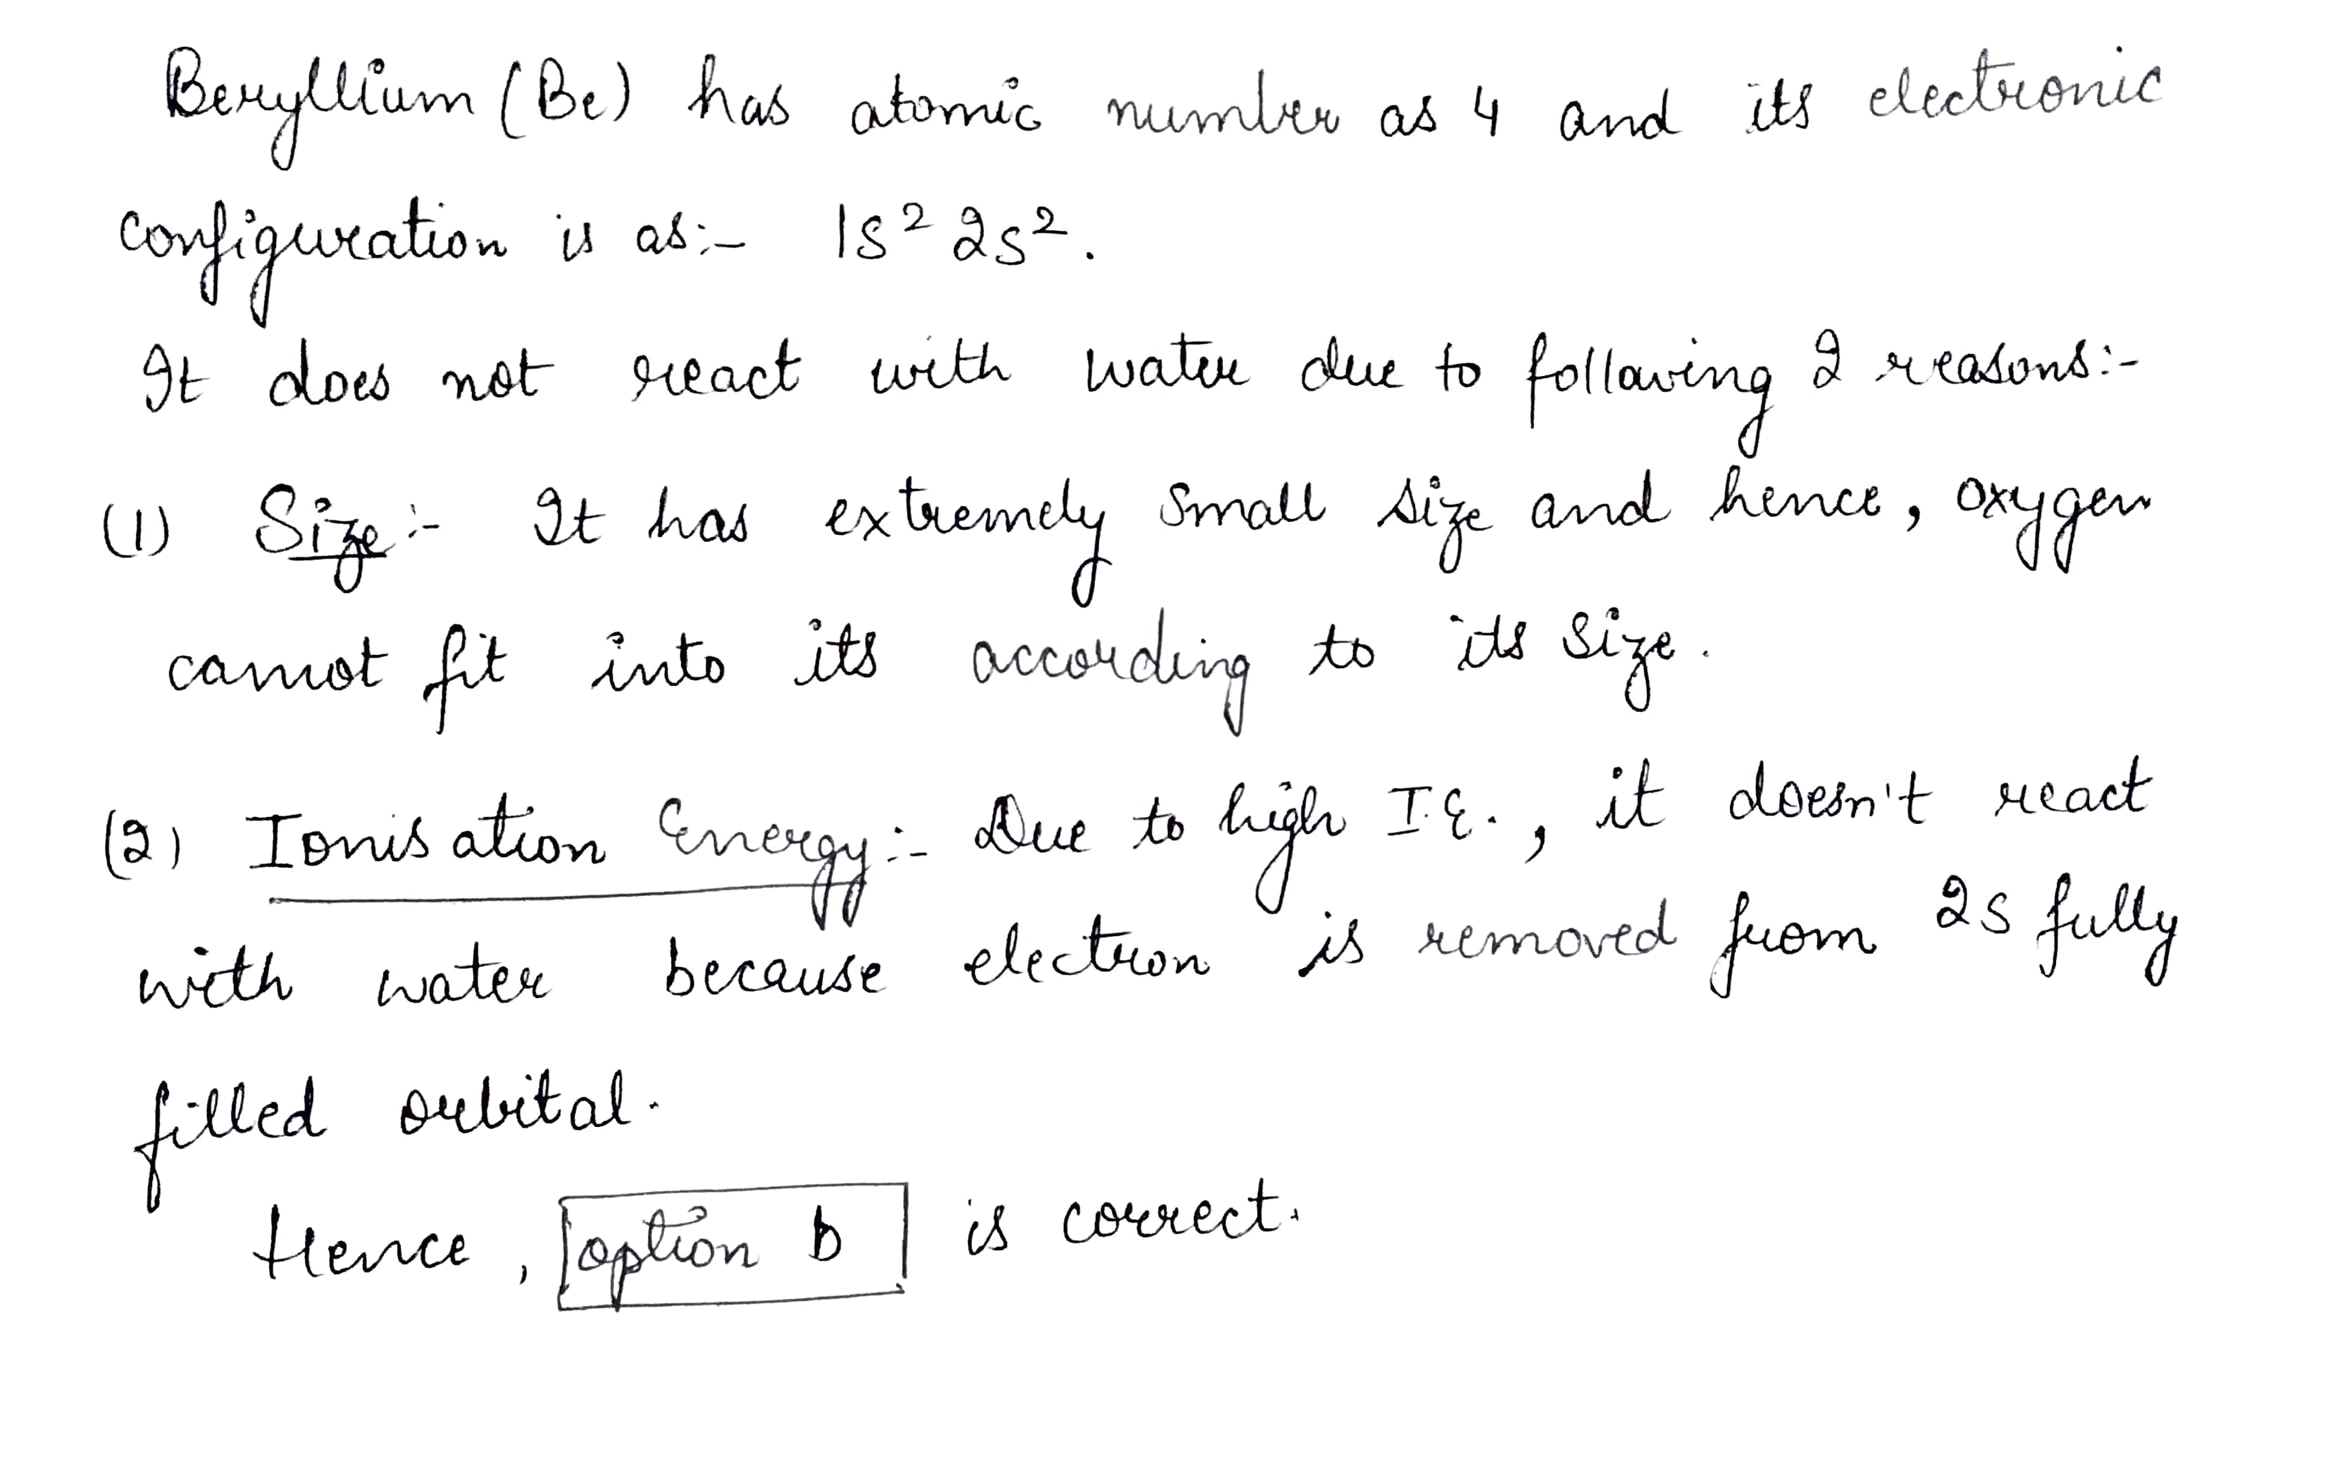 Beryllium (Be) has atomic number as 4 and its electronic
configuration is as:- 1s² 2s².
It does not react with water due to following 2 reasons:-
(1) Size:- It has extremely small size and hence, oxygen
cannot fit into its according to its size.
(2) Ionisation Energy:- Due to high I.E., it doesn't react
with water because electron is removed from 2s fully
filled orbital.
Hence, option b is correct.